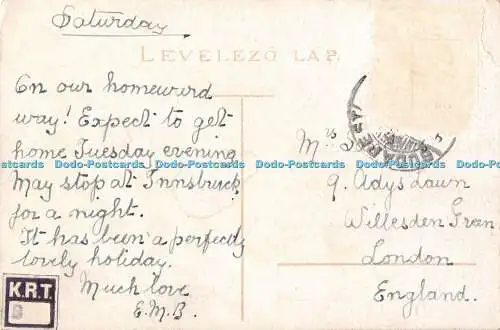 Saturday
LEVELEZŐ LAP.
On our homeward
way! Expect to get
home Tuesday evening
May stop at Innsbruck
for a night.
It has been a perfectly
lovely holiday.
Much love
E.M.B.
Mrs
9. Adys Lawn
Willesden Green
London
England.
K.R.T.
Dodo-Postcards Dodo-Postcards Dodo-Postcards Dodo-Postcards Dodo-Postcards